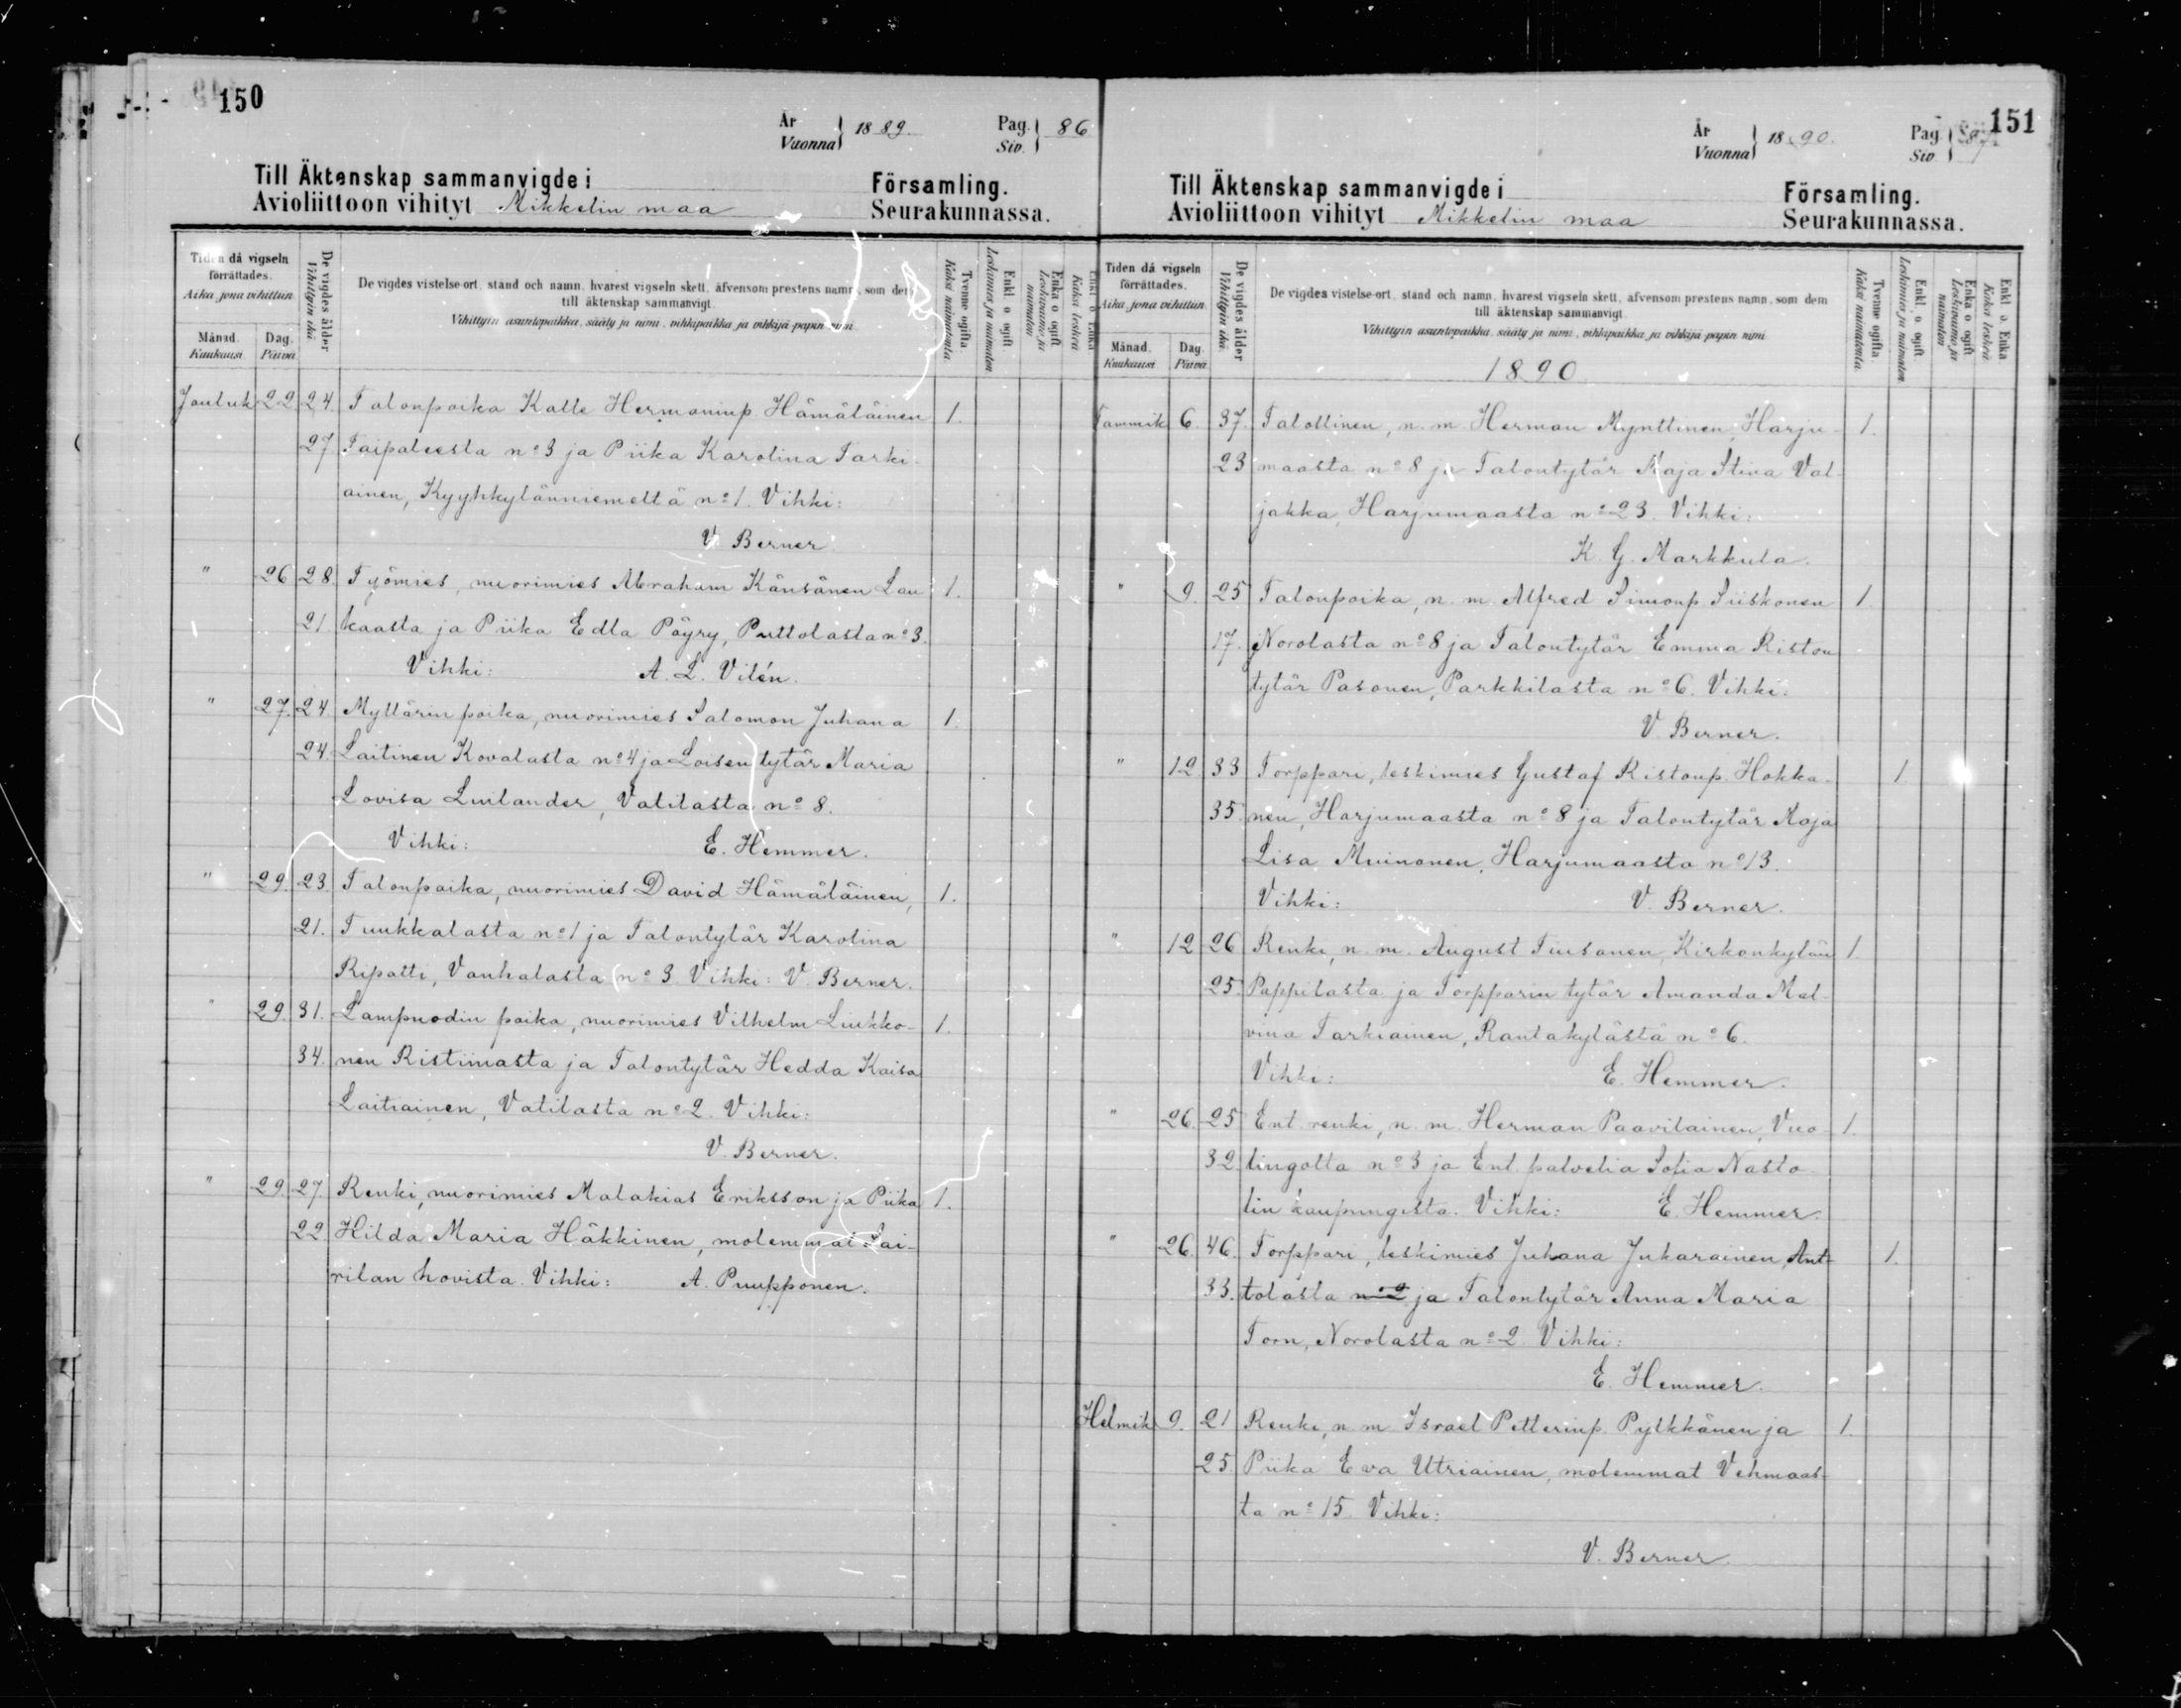 150
År
Vuonna } 1889. Pag.
Siv. } 86
Till Äktenskap sammanvigde i Församling.
Avioliittoon vihityt Mikkelin maa Seurakunnassa.
Tiden då vigseln förrättades.
Aika, jona vihittiin
Månad.
Kuukausi.
Dag.
Päivä.
De vigdes ålder
Vihittyin ikä.
De vigdes vistelse-ort, stånd och namn, hvarest vigseln skett, äfvensom prestens namn, som dem
till äktenskap sammanvigt.
Vihittyin asuntopaikka, sääty ja nimi, vihkipaikka ja vihkijä-papin nimi.
Tvenne ogifta.
Kaksi naimatonta.
Enkl. o. ogift.
Leskimies ja naimaton
Enka o. ogift.
Leskivaimo ja naimaton
Enkl o. Enka
Kaksi leskeä
Jouluk 22 24. Talonpoika Kalle Hermaninp. Hämäläinen 1.
27 Taipaleesta nº 3 ja Piika Karolina Tarki-
ainen, Kyyhkylänniemeltä nº 1. Vihki:
V. Berner
" 26 28. Työmies, nuorimies Abraham Känsänen Lau 1.
21 kaasta ja Piika Edla Pöyry, Puttolasta nº 3.
Vihki: A. L. Vilén.
" 27. 24 Myllärin poika, nuorimies Salomon Juhana 1.
24. Laitinen Kovalasta nº 4 ja Loisen tytär Maria
Lovisa Luilander, Vatilasta nº 8.
Vihki: E. Hemmer.
" 29. 23. Talonpoika, nuorimies David Hämäläinen, 1.
21. Tuukkalasta nº 1 ja Talontytär Karolina
Ripatti, Vanhalasta nº 3. Vihki: V. Berner.
" 29. 31. Lampuodin poika, nuorimies Vilhelm Liukko- 1.
34. nen Ristiinasta ja Talontytär Hedda Kaisa
Laitiainen, Vatilasta nº 2. Vihki:
V. Berner.
" 29. 27. Renki, nuorimies Malakias Eriksson ja Piika 1.
22. Hilda Maria Häkkinen, molemmat Sai-
rilan hovista. Vihki: A. Puupponen.
151
År
Vuonna } 1890. Pag.
Siv. } 87
Till Äktenskap sammanvigde i Församling.
Avioliittoon vihityt Mikkelin maa Seurakunnassa.
Tiden då vigseln förrättades.
Aika, jona vihittiin
Månad.
Kuukausi
Dag.
Päivä
De vigdes ålder
Vihittyin ikä.
De vigdes vistelse-ort, stånd och namn, hvarest vigseln skett, äfvensom prestens namn, som dem
till äktenskap sammanvigt.
Vihittyin asuntopaikka, sääty ja nimi, vihkipaikka ja vihkijä-papin nimi
1890
Tvenne ogifta.
Kaksi naimatonta.
Enkl. o. ogift.
Leskimies ja naimaton
Enka o. ogift
Leskivaimo ja naimaton
Enkl o. Enka
Kaksi leskeä
Tammik 6. 37. Talollinen, n. m. Herman Mynttinen, Harju- 1.
23 maasta nº 8 ja Talontytär Maja Stina Val-
jakka, Harjumaasta nº 23. Vihki:
K G. Markkula.
" 9. 25 Talonpoika, n. m. Alfred Simonp. Siiskonen 1
17. Norolasta nº 8 ja Talontytär Emma Riston
tytär Pasonen, Parkkilasta nº 6. Vihki:
V. Berner.
" 12 33 Torppari, leskimies Gustaf Ristonp. Hokka- 1
35. nen, Harjumaasta nº 8 ja Talontytär Kaja
Lisa Muinonen, Harjumaasta nº 13.
Vihki: V. Berner.
" 12 26 Renki, n. m. August Tiusanen, Kirkonkylän 1
25. Pappilasta ja Torpparin tytär Amanda Mal-
vina Tarkiainen, Rantakylästä nº 6.
Vihki: E. Hemmer.
" 26. 25 Ent. renki, n. m. Herman Paavilainen, Vuo- 1.
32 lingolta nº 3 ja Ent. palvelia Sofia Nasto-
lin kaupungista. Vihki: E. Hemmer.
" 26. 46. Torppari, leskimies Juhana Jukarainen, Ant- 1.
33. tolasta nº 2 ja Talontytär Anna Maria
Torn, Norolasta nº 2. Vihki:
E. Hemmer.
Helmik 9. 21 Renki, n. m. Israel Petterinp. Pylkkänen ja 1.
25 Piika Eva Utriainen, molemmat Vehmaas-
ta nº 15. Vihki:
V. Berner